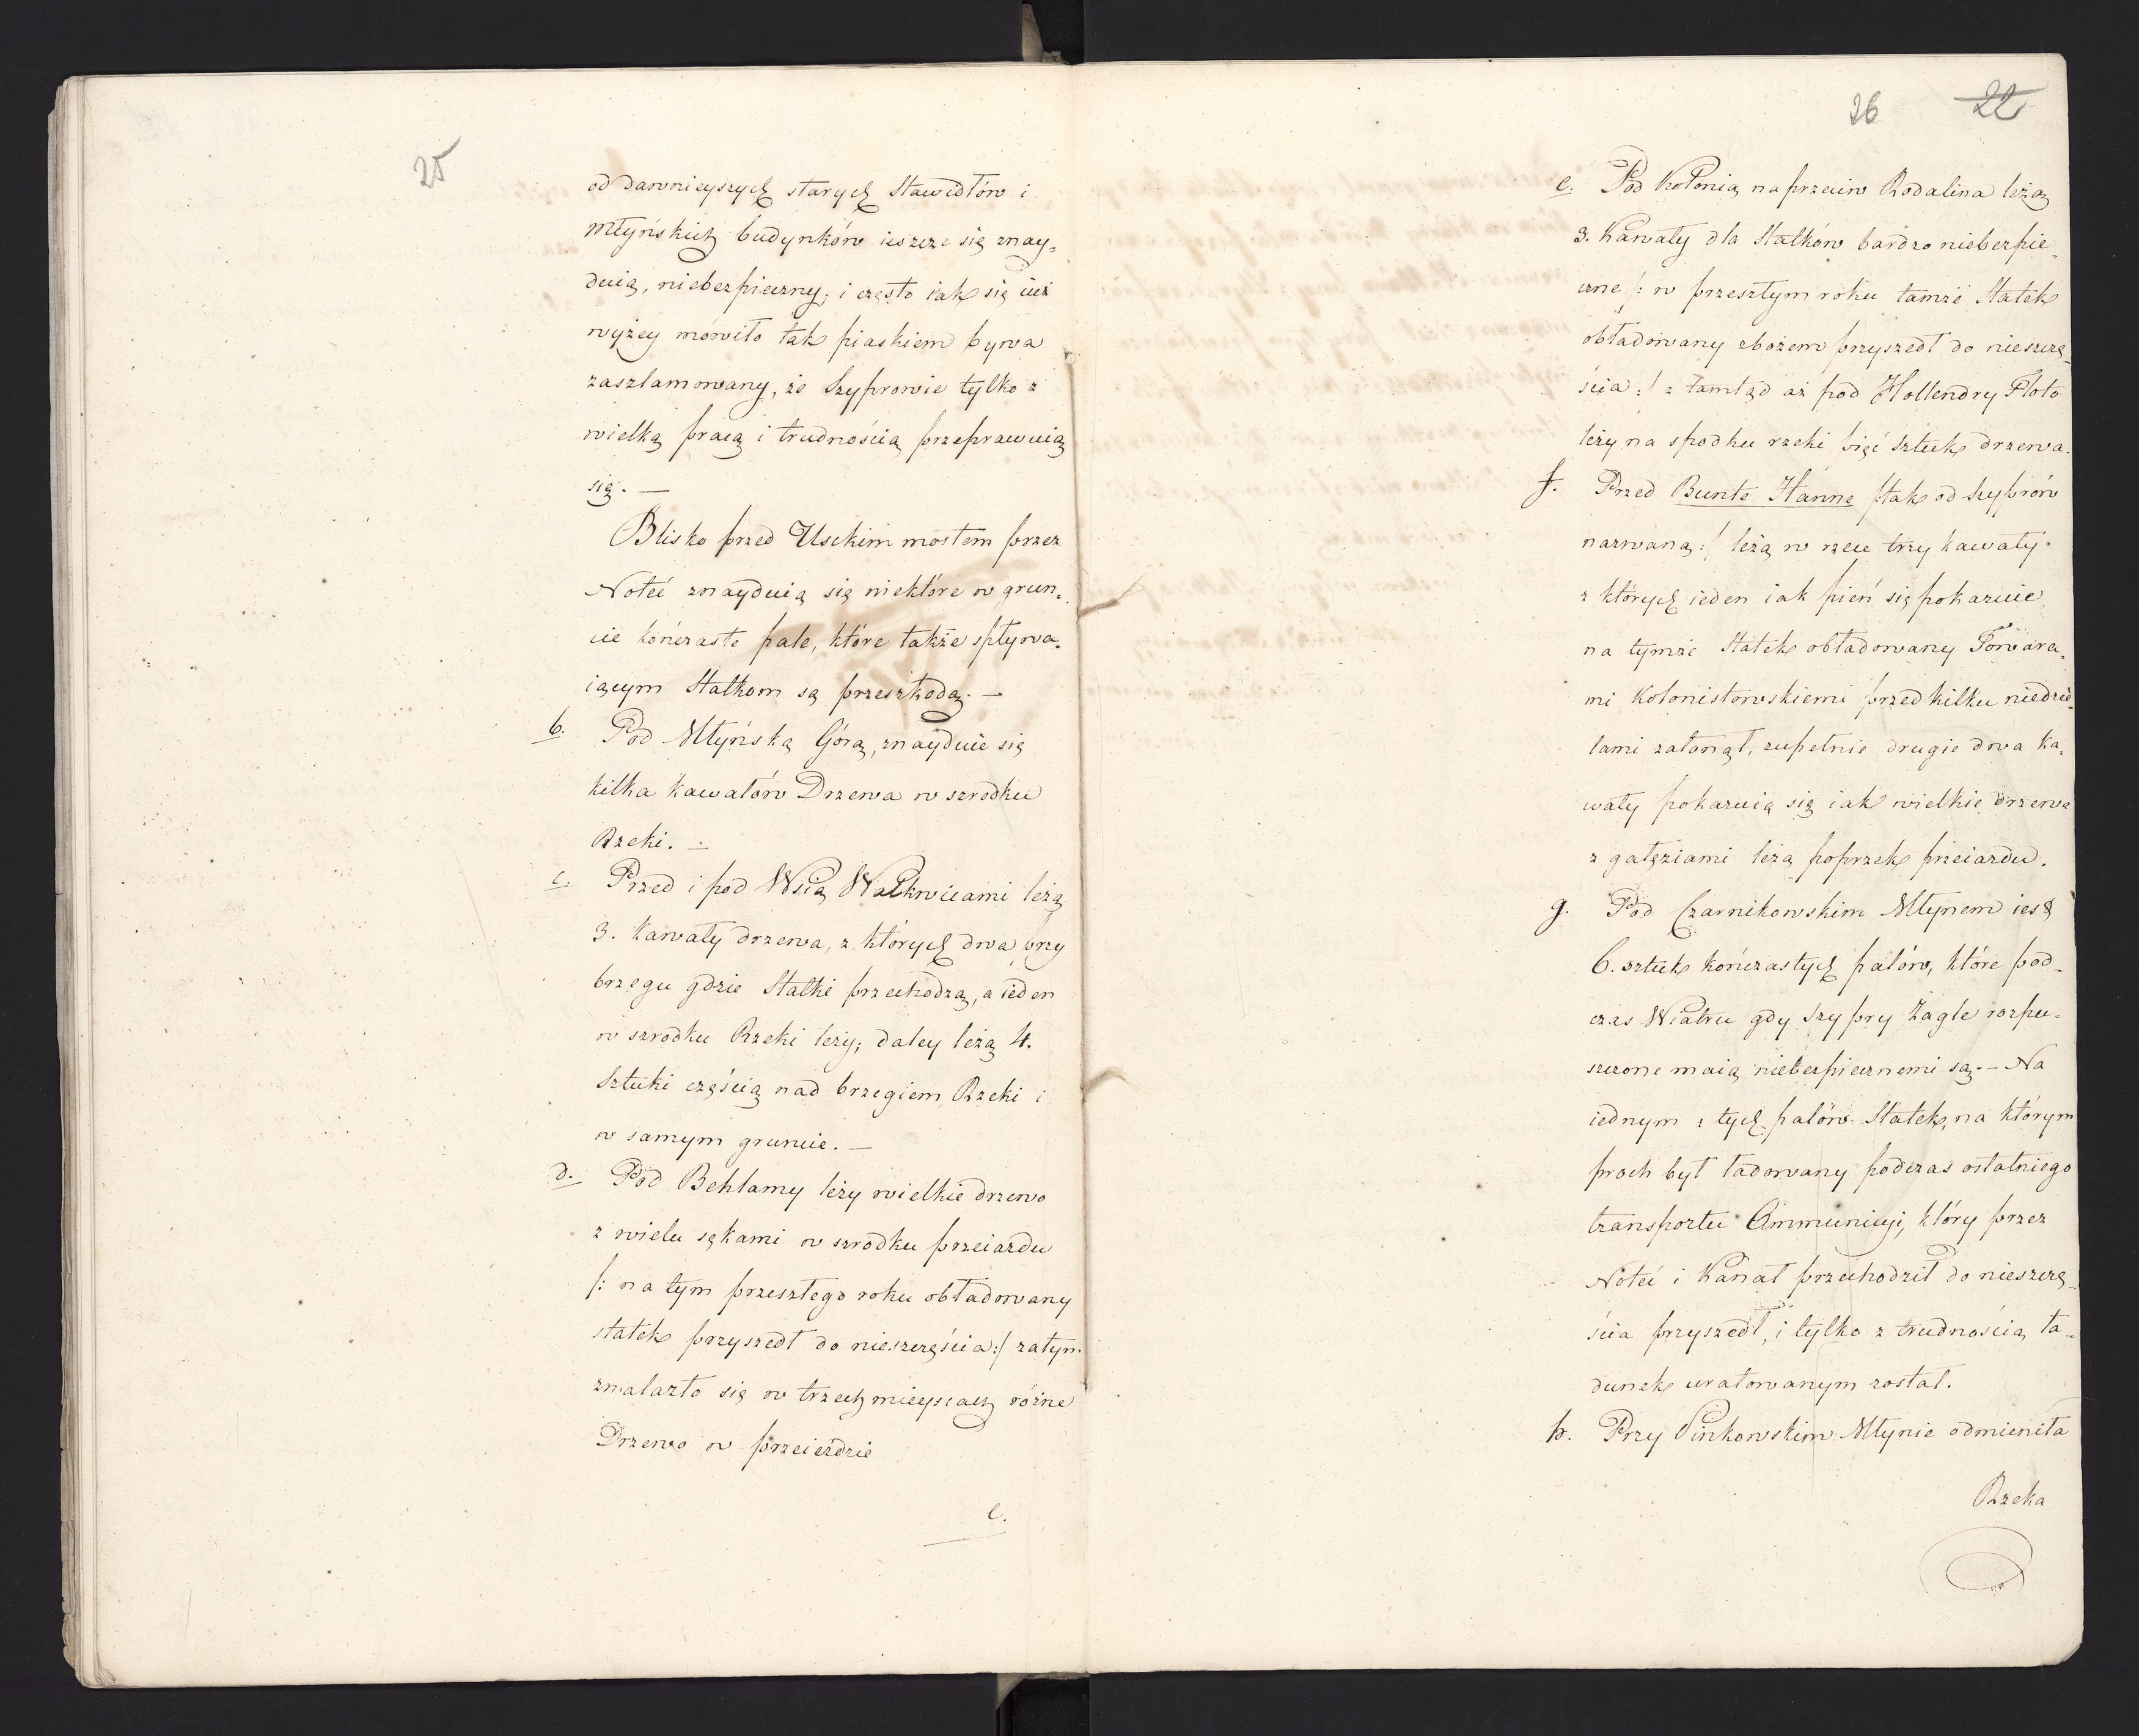 25
od dawnieyszych starych Stawidłów i
Młyńskich budynków ieszcze się znay„
duią, niebezpieczny; i często iak się iuż
wyżey mówiło tak piaskiem bywa
zaszlamowany, że Szyprowie tylko z
wielką pracą i trudnością przeprawuią
się. —
Blisko przed Usckim mostem przez
Noteć znayduią się niektóre w grun„
cie kończaste pale, które także spływa„
iącym Statkom są przeszkodą. —
b. Pod Młyńską Górą, znayduie się
kilka kawałów Drzewa w szrodku
Rzeki. —
c. Przed i pod Wsią Walkwicami leżą
3. kawały drzewa, z których dwa przy
brzegu gdzie Statki przechodzą, a ieden
w szrodku Rzeki leży; daley leżą 4.
Sztuki częścią nad brzegiem Rzeki i
w samym gruncie. —
d. Pod Behlamy leży wielkie drzewo
z wielu sękami w szrodku przeiazdu
/: na tym przeszłego roku obładowany
statek przyszedł do nieszczęścia :/ zatym
znalazło się w trzech mieyscach różne
Drzewo w przeieździe
e.
26 22
e. Pod Kolonią naprzeciw Rodalina leżą
3. Kawały dla Statków bardzo niebezpie„
czne /: w przeszłym roku tamże Statek
obładowany zbożem przyszedł do nieszczę„
ścia :/ z tamtąd aż pod Hollendry Floto
leży na spodku rzeki pięć sztuk drzewa.
f. Przed Bunte Hanne /tak od Szyprów
nazwaną :/ leżą w rzece trzy kawały
z których ieden iak pień się pokazuie
na tymże Statek obładowany Towara„
mi kolonistowskiemi przed kilku niedzie„
lami zatonął, zupełnie drugie dwa ka„
wały pokazuią się iak wielkie drzewa
z gałęziami leżą poprzek przeiazdu.
g. Pod Czarnikowskim Młynem iest
6. sztuk kończastych palów, które pod„
czas Wiatru gdy szypry Żagle rozpu„
szczone maią niebezpiecznemi są. — Na
iednym z tych palów Statek, na którym
proch był ładowany podczas ostatniego
transportu Ammunicyi, który przez
Noteć i Kanał przechodził do nieszczę„
ścia przyszedł, i tylko z trudnością ła„
dunek uratowanym został.
h. Przy Pinkowskim Młynie odmieniła
Rzeka